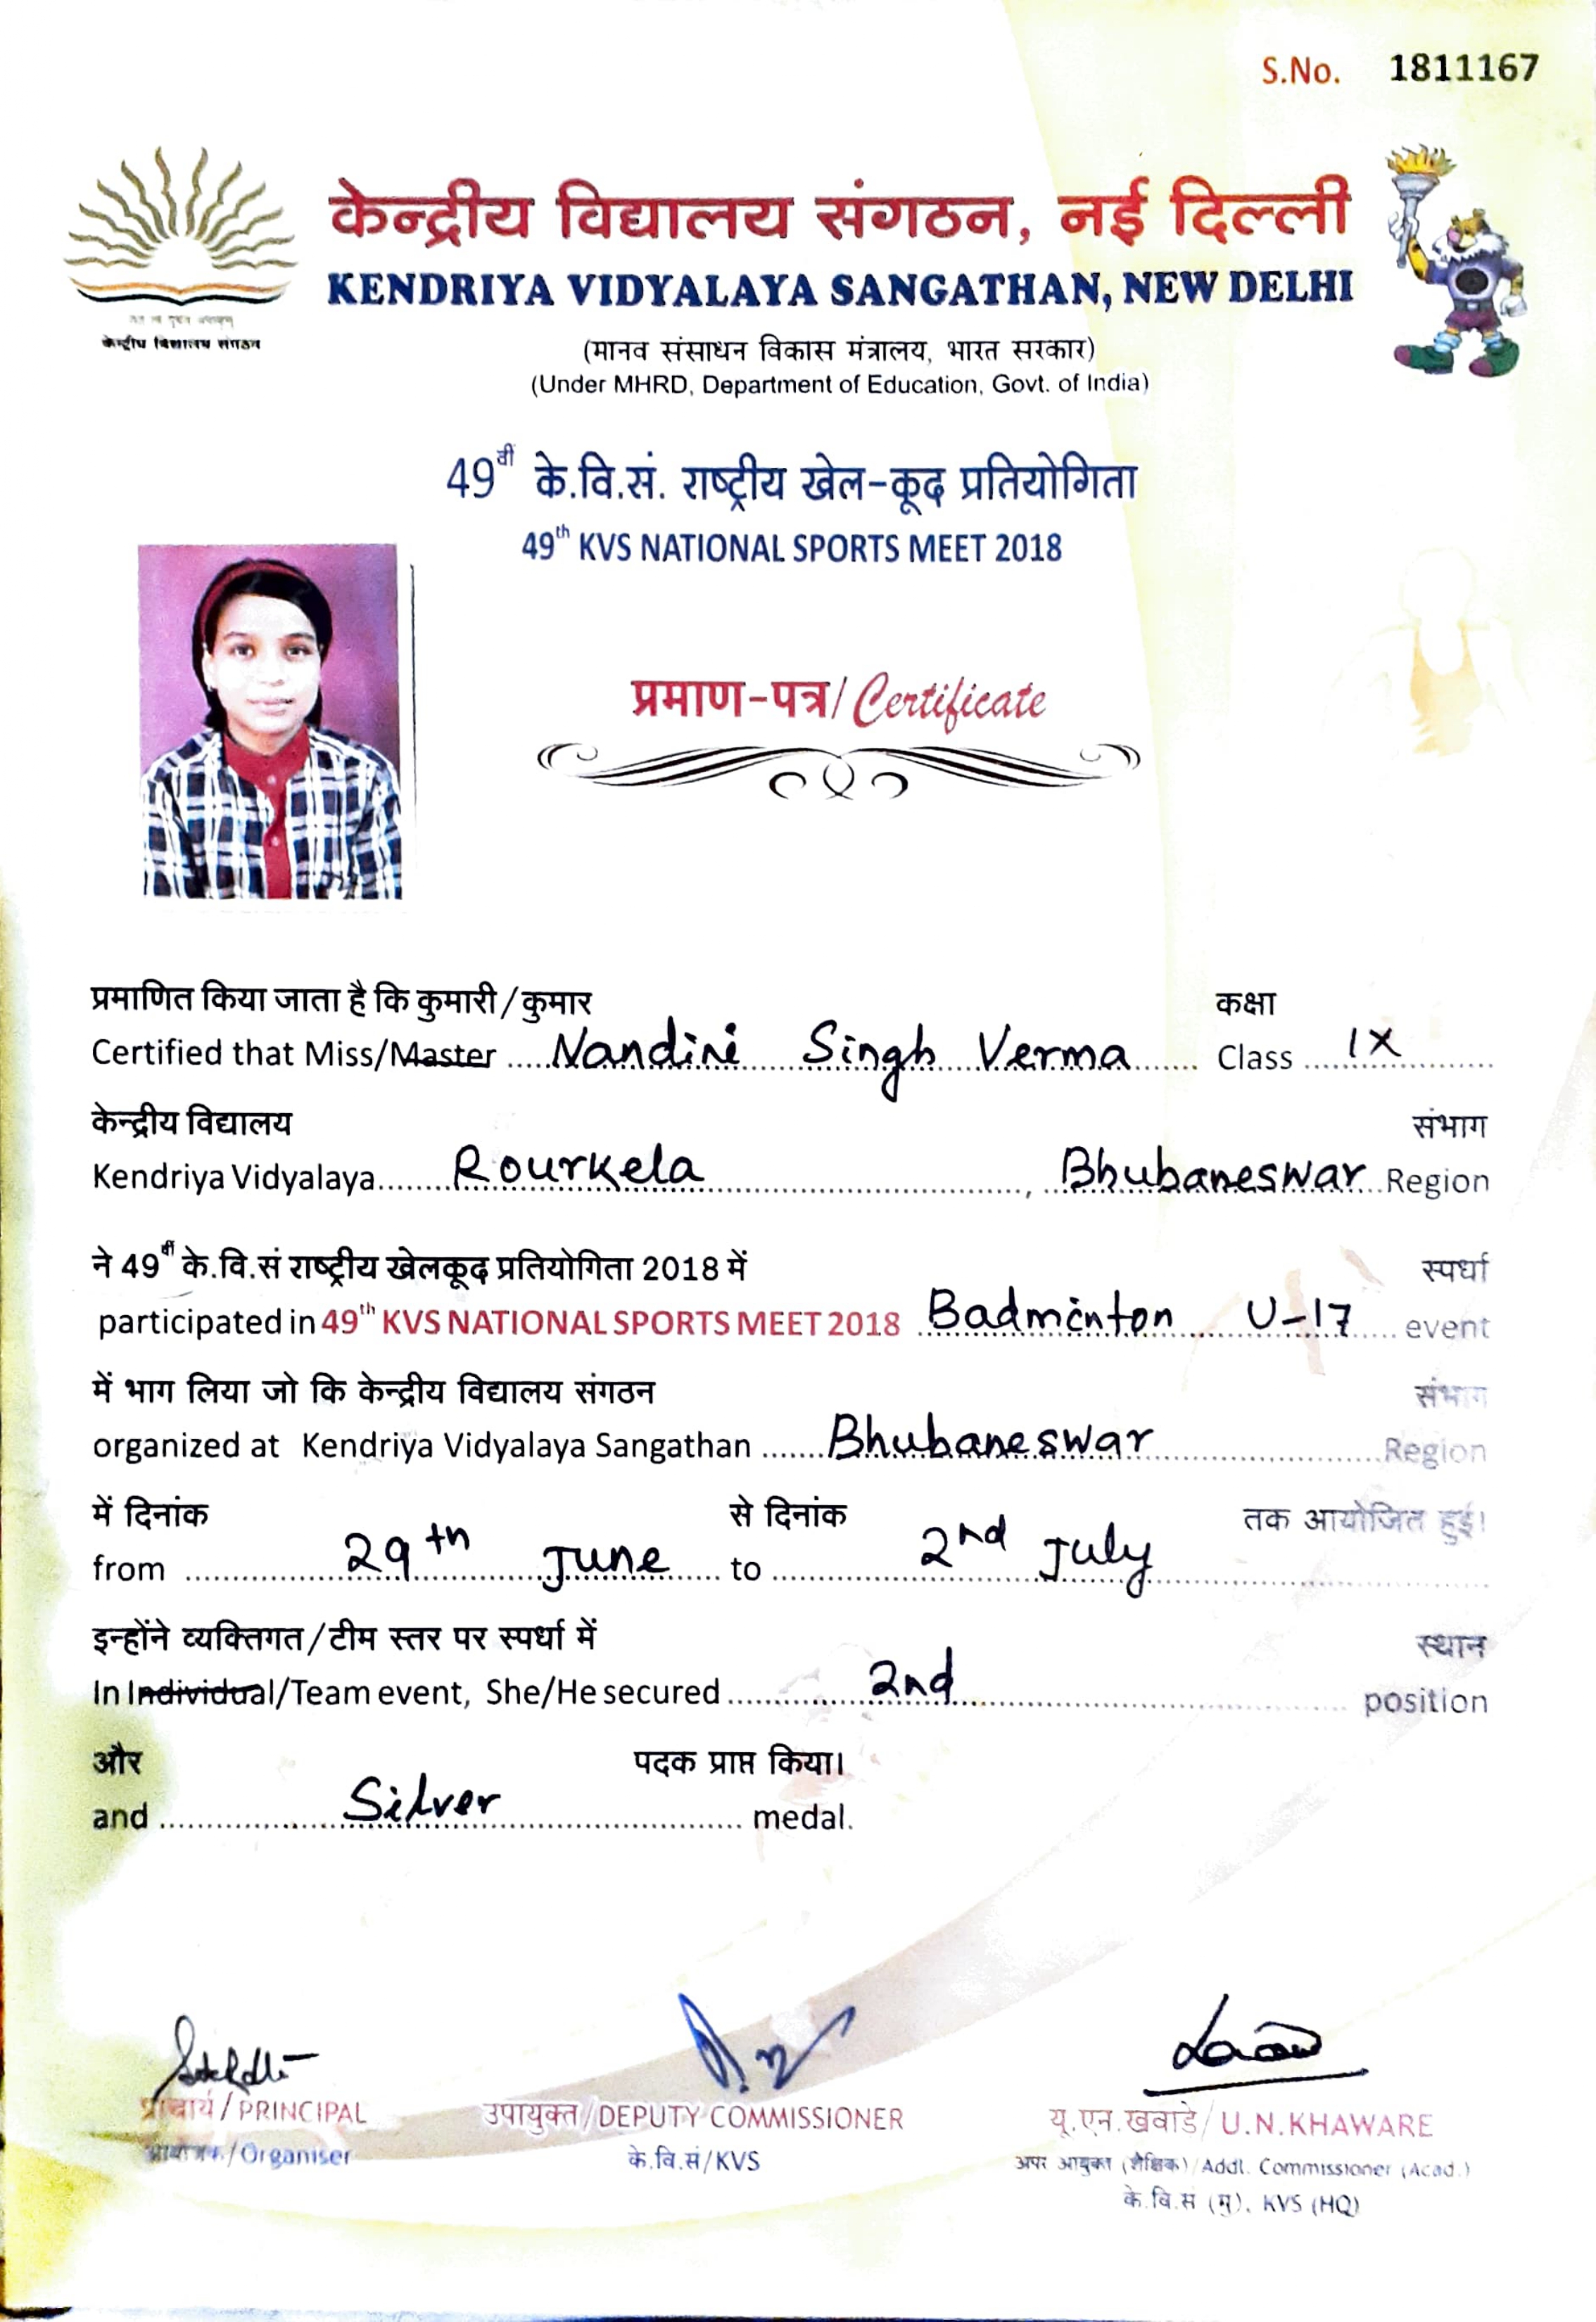 S.No. 1811167
केन्द्रीय विद्यालय संगठन, नई दिल्ली
KENDRIYA VIDYALAYA SANGATHAN, NEW DELHI
केन्द्रीय विद्यालय संगठन
(मानव संसाधन विकास मंत्रालय, भारत सरकार)
(Under MHRD, Department of Education, Govt. of India)
49वीं के.वि.सं. राष्ट्रीय खेल-कूद प्रतियोगिता
49th KVS NATIONAL SPORTS MEET 2018
प्रमाण-पत्र/Certificate
प्रमाणित किया जाता है कि कुमारी/कुमार कक्षा
Certified that Miss/Master Nandini Singh Verma Class IX
केन्द्रीय विद्यालय संभाग
Kendriya Vidyalaya Rourkela, Bhubaneswar Region
ने 49वीं के.वि.सं राष्ट्रीय खेलकूद प्रतियोगिता 2018 में स्पर्धा
participated in 49th KVS NATIONAL SPORTS MEET 2018 Badminton U-17 event
में भाग लिया जो कि केन्द्रीय विद्यालय संगठन संभाग
organized at Kendriya Vidyalaya Sangathan Bhubaneswar Region
में दिनांक से दिनांक तक आयोजित हुई।
from 29th June to 2nd July
इन्होंने व्यक्तिगत/टीम स्तर पर स्पर्धा में स्थान
In Individual/Team event, She/He secured 2nd position
और पदक प्राप्त किया।
and Silver medal.
प्राचार्य/PRINCIPAL उपायुक्त/DEPUTY COMMISSIONER यू.एन.खवाडे/U.N.KHAWARE
/Organiser के.वि.सं/KVS अपर आयुक्त (शैक्षिक)/Addl. Commissioner (Acad.)
के.वि.सं (मु). KVS (HQ)